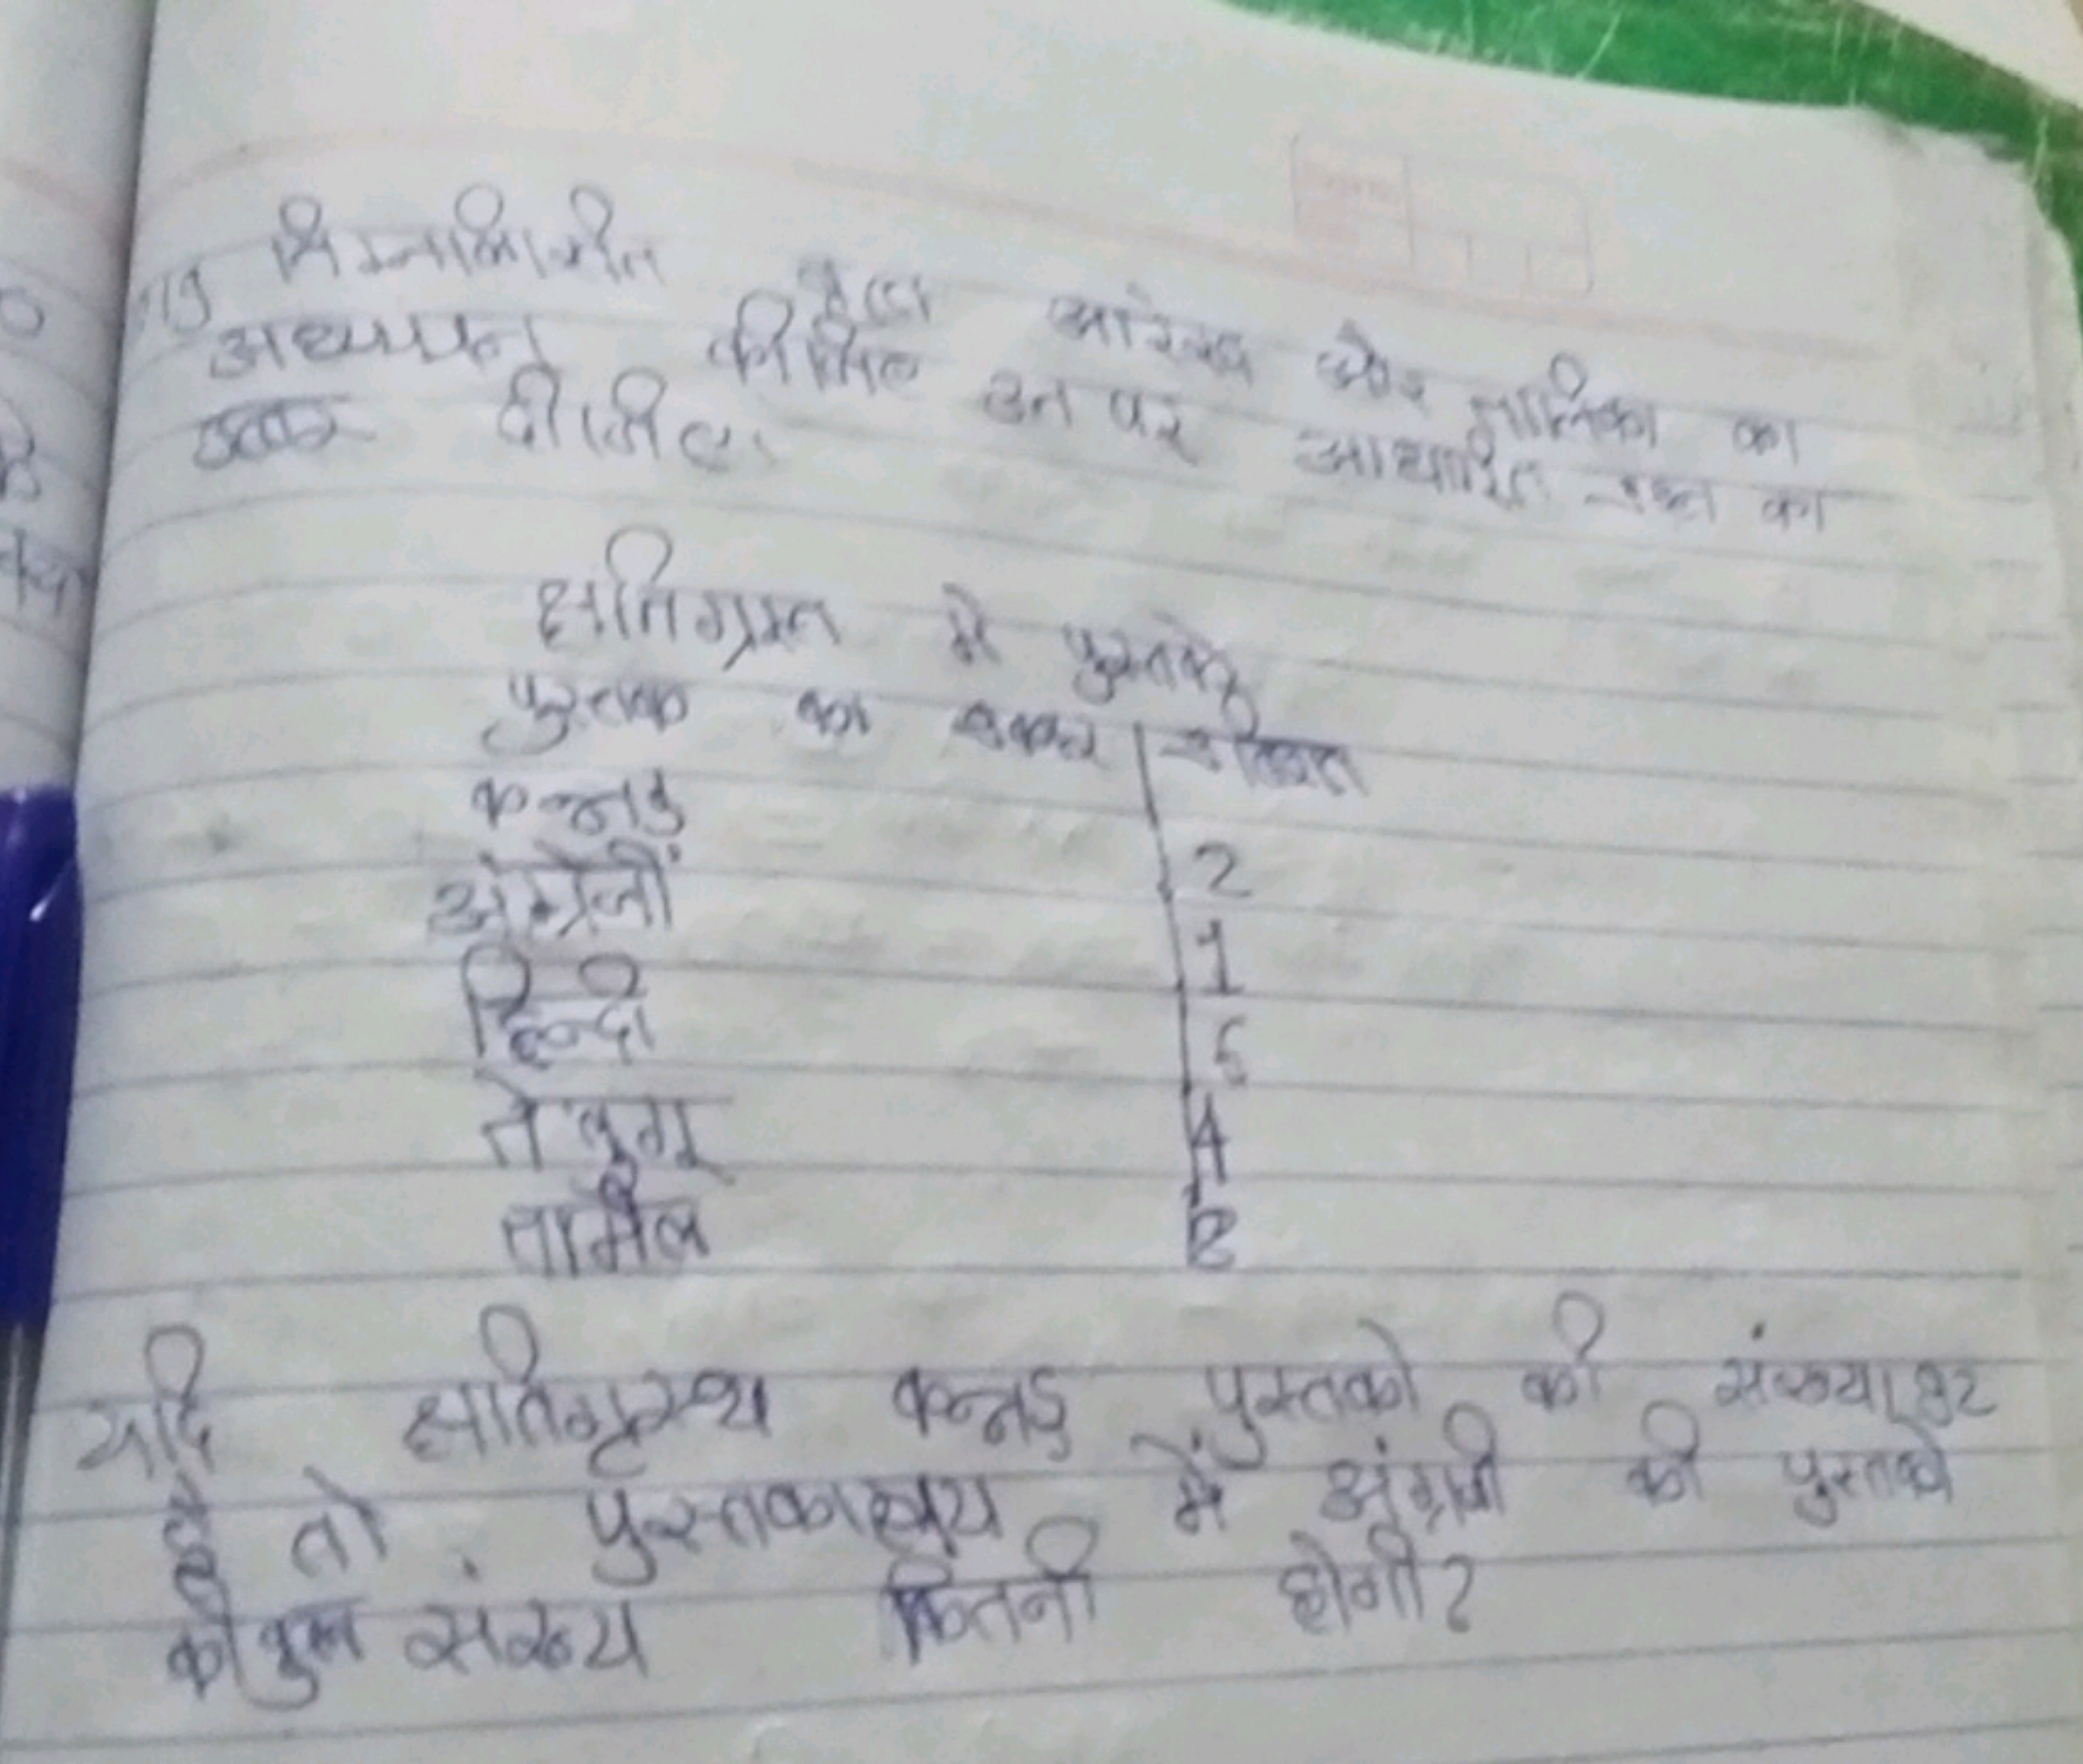 निम्नलिखीत वृत्त आरेख और तालिका का
अध्ययन कीजिए उन पर आधारित प्रश्न का
उत्तर दीजीए
क्षतिग्रस्त मे पुस्तके
पुस्तक का प्रकार प्रतिशत
कन्नड़ 2
अंग्रेजीं 1
हिन्दी 5
तेलुगू 4
तामील 2
यदि क्षतिग्रस्थ कन्नड़ पुस्तको की संख्या
है तो पुस्तकालय में अंग्रजी की पुस्तके
की कुल संख्य कितनी होगी?